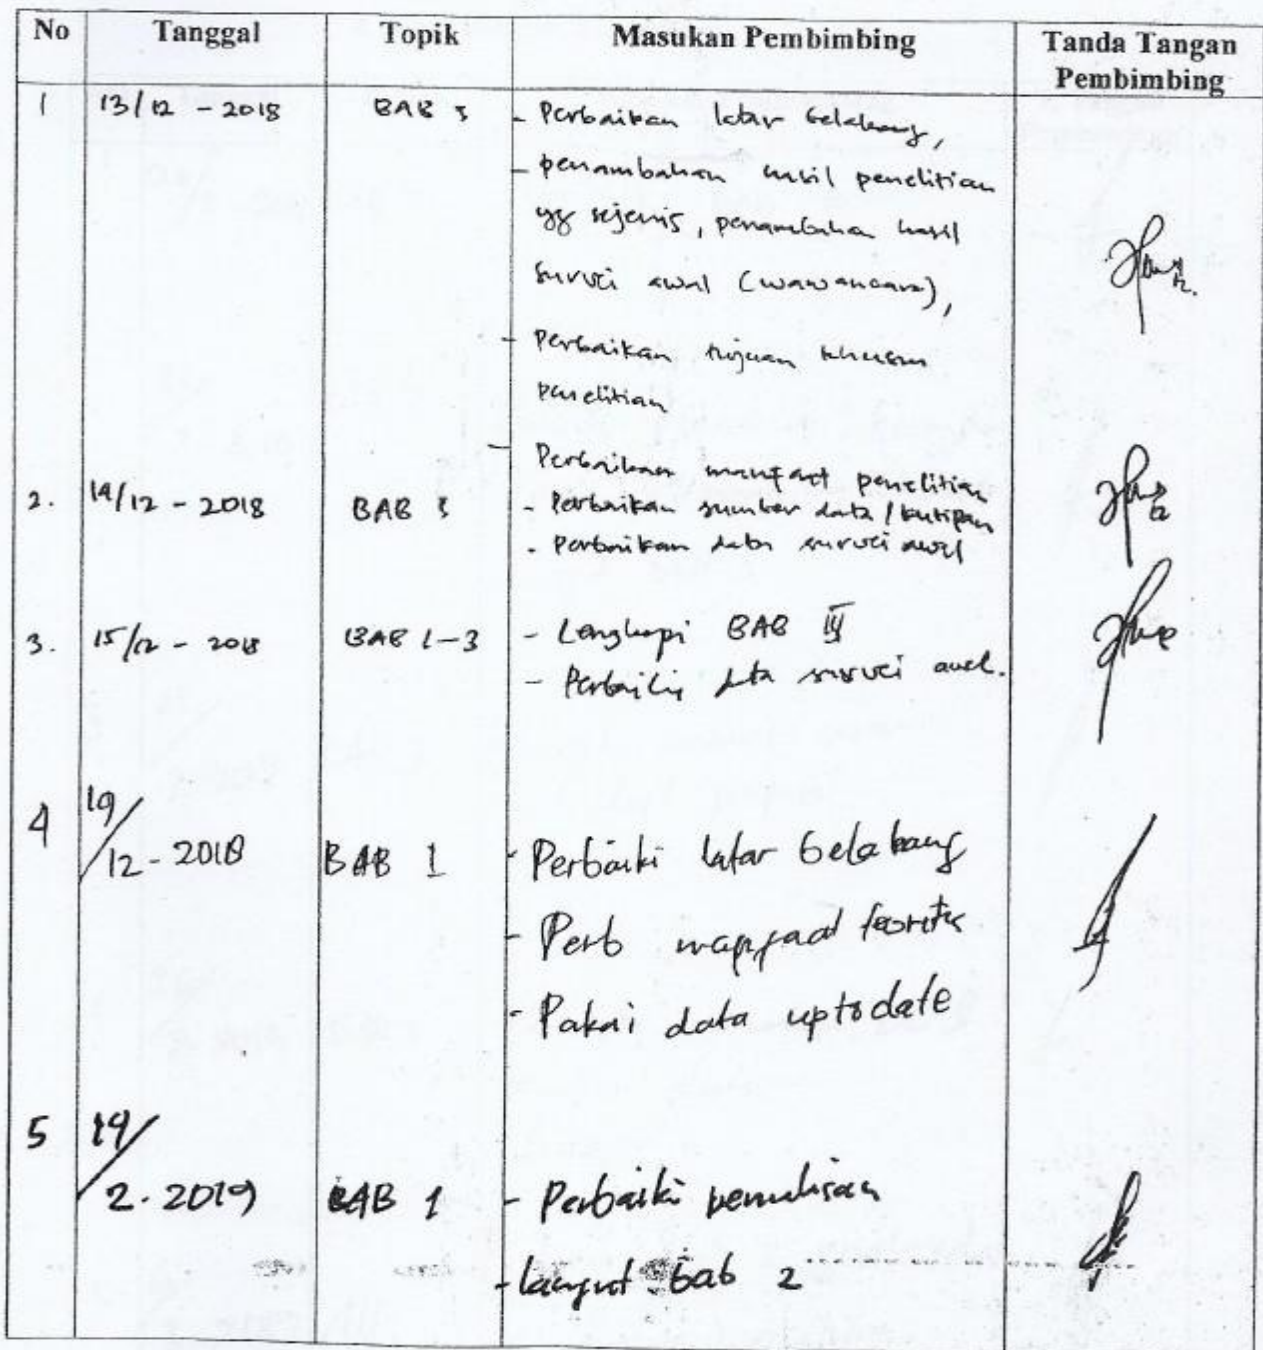 No Tanggal Topik Masukan Pembimbing Tanda Tangan Pembimbing
1 13/12 - 2018 BAB I - Perbaikan latar belakang,
- penambahan hasil penelitian
yg sejenis, penambahan hasil
survei awal (wawancara),
- Perbaikan tujuan khusus
penelitian
- Perbaikan manfaat penelitian
2. 14/12 - 2018 BAB I - Perbaikan sumber data / kutipan
- Perbaikan data survei awal
3. 15/12 - 2018 BAB 1-3 - Lengkapi BAB III
- Perbaiki data survei awal.
4 19/12 - 2018 BAB 1 - Perbaiki latar belakang
- Perb manfaat teoritis
- Pakai data uptodate
5 19/2. 2019 BAB 1 - Perbaiki penulisan
- lanjut bab 2